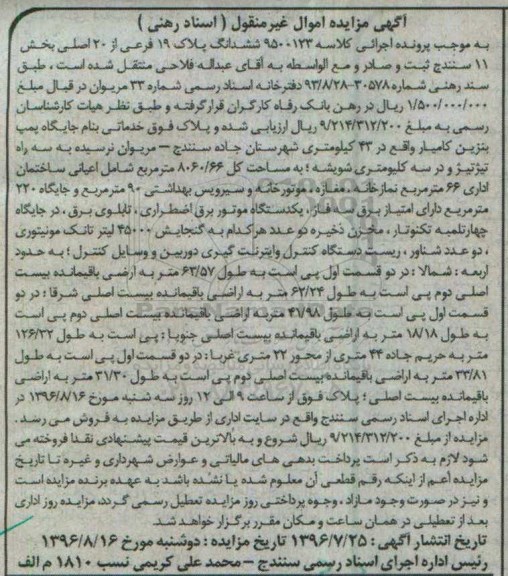 آگهی مزایده اموال غیرمنقول ( اسناد رهنی )
به موجب پرونده اجرائی کلاسه ۹۵۰۰۱۲۳ ششدانگ پلاک ۱۹ فرعی از ۲۰ اصلی بخش
۱۱ سنندج ثبت و صادر و مع الواسطه به آقای عبداله فلاحی منتقل شده است ، طبق
سند رهنی شماره ۳۰۵۷۸-۹۳/۸/۲۸ دفترخانه اسناد رسمی شماره ۳۳ مریوان در قبال مبلغ
۱/۵۰۰/۰۰۰/۰۰۰ ریال در رهن بانک رفاه کارگران قرارگرفته و طبق نظر هیات کارشناسان
رسمی به مبلغ ۹/۲۱۴/۳۱۲/۲۰۰ ریال ارزیابی شده و پلاک فوق خدماتی بنام جایگاه پمپ
بنزین کامیار واقع در ۴۳ کیلومتری شهرستان جاده سنندج – مریوان نرسیده به سه راه
تیژتیژ و در سه کلیومتری شویشه ؛ به مساحت کل ۸۰۶۰/۶۶ مترمربع شامل اعیانی ساختمان
اداری ۶۶ مترمربع نمازخانه ، مغازه ، موتورخانه و سیرویس بهداشتی ۹۰ مترمربع و جایگاه ۲۲۰
مترمربع دارای امتیاز برق سه فاز ، یکدستگاه موتور برق اضطراری ، تابلوی برق ، در جایگاه
چهارتلمبه تکنوتار ، مخزن ذخیره دو عدد هرکدام به گنجایش ۴۵۰۰۰ لیتر تانک مونیتوری
، دو عدد شناور ، ریست دستگاه کنترل واینترنت گیری دوربین و وسایل کنترل ؛ به حدود
اربعه : شمالا : در دو قسمت اول پی است به طول ۶۳/۵۷ متر به اراضی باقیمانده بیست
اصلی دوم پی است به طول ۶۲/۲۴ متر به اراضی باقیمانده بیست اصلی شرقا : در دو
قسمت اول پی است به طول ۴۱/۹۸ متر به اراضی باقیمانده بیست اصلی دوم پی است
به طول ۱۸/۱۸ متر به اراضی باقیمانده بیست اصلی جنوبا : پی است به طول ۱۲۶/۳۲
متر به حریم جاده ۴۴ متری از محور ۲۲ متری غربا : در دو قسمت اول پی است به طول
۳۳/۸۱ متر به اراضی باقیمانده بیست اصلی دوم پی است به طول ۳۱/۳۰ متر به اراضی
باقیمانده بیست اصلی ؛ پلاک فوق از ساعت ۹ الی ۱۲ روز سه شنبه مورخ ۱۳۹۶/۸/۱۶ در
اداره اجرای اسناد رسمی سنندج واقع در سایت اداری از طریق مزایده به فروش می رسد .
مزایده از مبلغ ۹/۲۱۴/۳۱۲/۲۰۰ ریال شروع و به بالاترین قیمت پیشنهادی نقدا فروخته می
شود لازم به ذکر است پرداخت بدهی های مالیاتی و عوارض شهرداری و غیره تا تاریخ
مزایده اعم از اینکه رقم قطعی آن معلوم شده یا نشده باشد به عهده برنده مزایده است
و نیز در صورت وجود مازاد ، وجوه پرداختی روز مزایده تعطیل رسمی گردد، مزایده روز اداری
بعد از تعطیلی در همان ساعت و مکان مقرر برگزار خواهد شد.
تاریخ انتشار آگهی : ۱۳۹۶/۷/۲۵ تاریخ مزایده : دوشنبه مورخ ۱۳۹۶/۸/۱۶
رئیس اداره اجرای اسناد رسمی سنندج – محمد علی کریمی نسب ۱۸۱۰ م الف